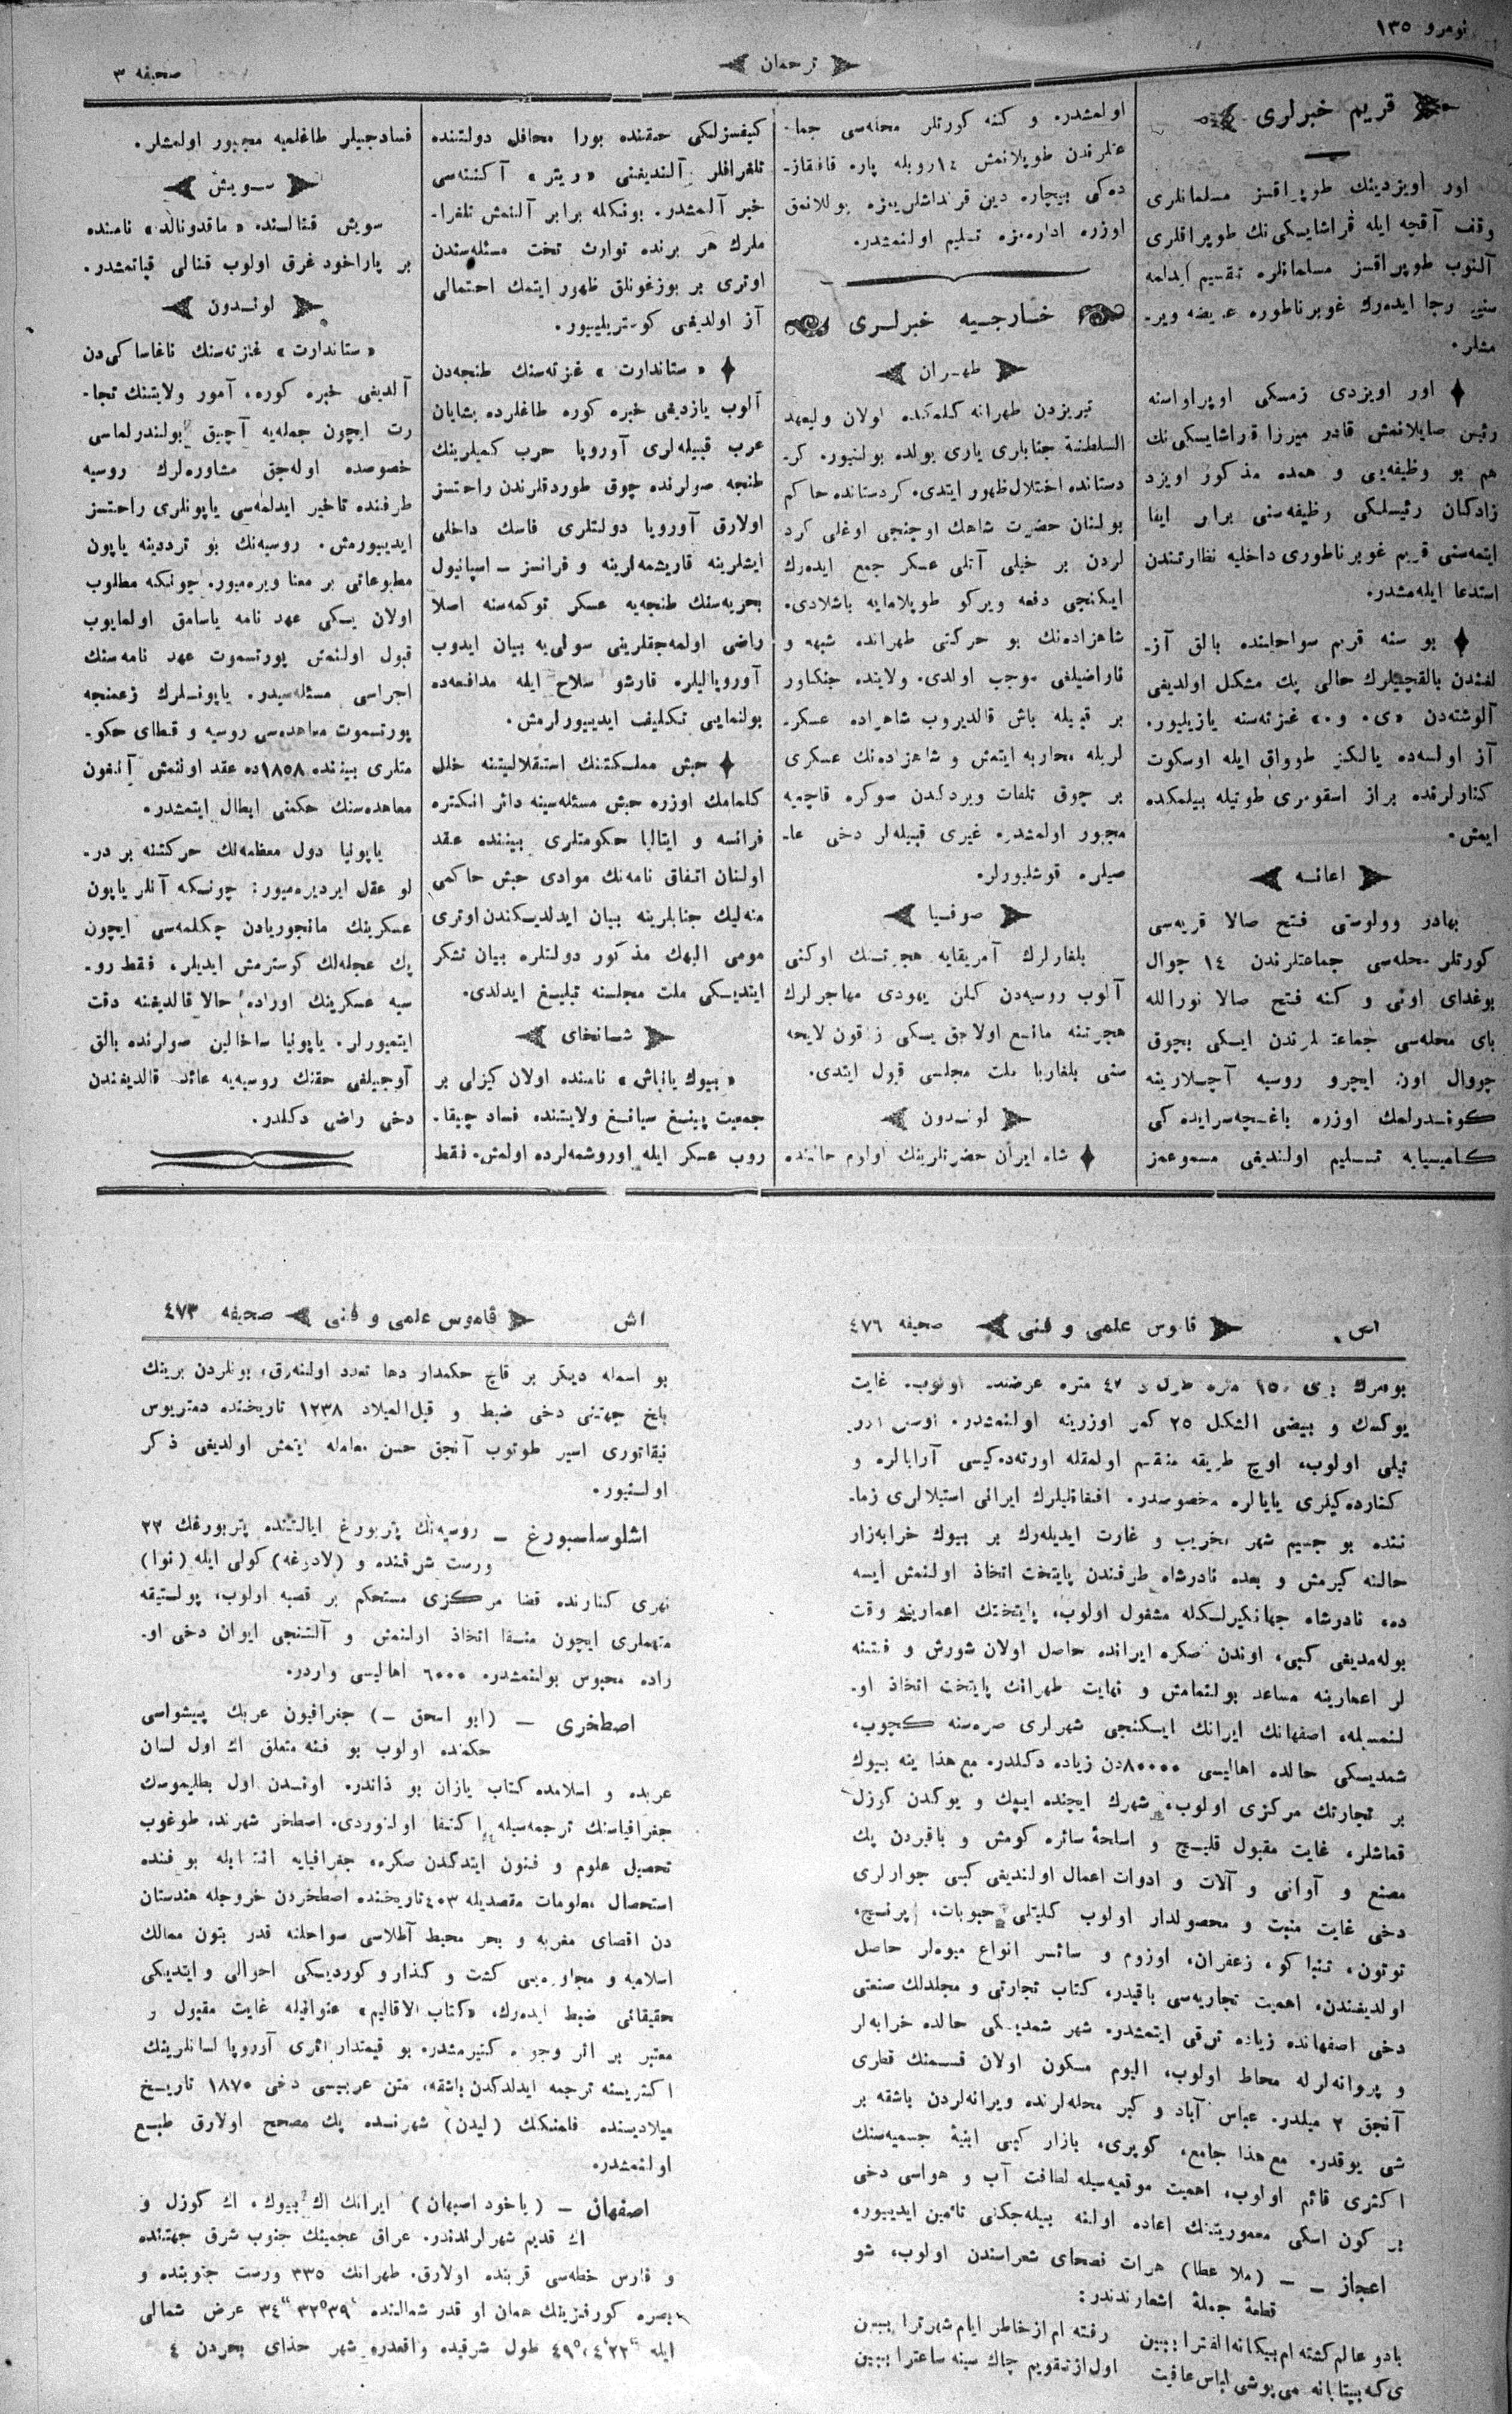 نومرو ١٣٥
ترجمان
صحیفه ٣
قریم خبرلری
اور اویزدینك طوپراقسز مسلمانلری
وقف آقچه ایله قراشایسكی‌نك طوپراقلری
آلنوب طوپراقسز مسلمانلره تقسیم ایدلمه
سنی رجا ایده‌رك غوبرناطوره عریضه ویر-
مشلر.
اور اویزدی زمسكی اوپراواسنه
رئیس صایلانمش قادر میرزا قراشایسكی‌نك
هم بو وظیفه‌یی و همده مذكور اویزد
زادكان رئیسلكی وظیفه‌سنی برابر ایفا
ایتمه‌سنی قریم غوبرناطوری داخلیه نظارتندن
استدعا ایله‌مشدر.
بو سنه قریم سواحلنده بالق آز-
لغندن بالقچیلرك حالی پك مشكل اولدیغی
آلوشته‌دن «ی. و.» غزته‌سنه یازیلیور.
آز اولسه‌ده یالكز طوواق ایله اوسكوت
كنارلرنده براز اسقومری طوتیله بیلمكده
ایمش.
اعانه
بهادر وولوستی فتح صالا قریه‌سی
كورتلر محله‌سی جماعتلرندن ١٤ جوال
بوغدای اونی و كنه فتح صالا نورالله
بای محله‌سی جماعتلرندن ایكی بچوق
چووال اون ایچرو روسیه آچلارینه
كوندرلمك اوزره باغچه‌سرایده كی
كامیسیایه تسلیم اولندیغی مسموعمز
اولمشدر. و كنه كورتلر محله‌سی جما-
عتلرندن طوپلانمش ١٤ روبله پاره قافقاز-
ده‌كی بیچاره دین قرنداشلریمزه یوللانمق
اوزره اداره‌مزه تسلیم اولنمشدر.
خارجیه خبرلری
طهران
تبریزدن طهرانه كلمكده اولان ولیعهد
السلطنة جنابلری یاری یولده بولنیور. كر-
دستانده اختلال ظهور ایتدی. كردستانده حاكم
بولنان حضرت شاهك اوچنجی اوغلی كرد
لردن بر خیلی آتلی عسكر جمع ایده‌رك
ایكنجی دفعه ویركو طوپلامایه باشلادی.
شاهزاده‌نك بو حركتی طهرانده شبهه و
ناراضیلغی موجب اولدی. ولایتده جنكاور
بر قبیله باش قالدیروب شاهزاده عسكر-
لریله محاربه ایتمش و شاهزاده‌نك عسكری
بر چوق تلفات ویردكدن صوكره قاچمیه
مجبور اولمشدر. غیری قبیله‌لر دخی عا-
صیلره قوشلیورلر.
صوفیا
بلغارلرك آمریقایه هجرتنك اوكنی
آلوب روسیه‌دن كلن یهودی مهاجرلرك
هجرتنه مانع اولاجق یكی زاقون لایحه
سنی بلغاریا ملت مجلسی قبول ایتدی.
لوندون
شاه ایران حضرتلرینك اوارم حالنده
كیفسزلكی حقنده بورا محافل دولتنده
تلغرافلر آلندیغنی «ریتر» آكنته‌سی
خبر آلمشدر. بونكله برابر آلنمش تلغرا-
ملرك هر برنده توارث تخت مسئله‌سندن
اوتری بر بوزغونلق ظهور ایتمك احتمالی
آز اولدیغی كوستریلیور.
«ستاندارت» غزته‌سنك طنجه‌دن
آلوب یازدیغی خبره كوره طاغلرده یشایان
عرب قبیله‌لری آوروپا حرب كمیلرینك
طنجه صولرنده چوق طوردقلرندن راحتسز
اولارق آوروپا دولتلری فاسك داخلی
ایشلرینه قاریشمه‌لرینه و فرانسز – اسپانیول
بحریه‌سنك طنجه‌یه عسكر توكمه‌سنه اصلا
راضی اولمه‌جقلرینی سویلیه بیان ایدوب
آوروپالیلره قارشو سلاح ایله مدافعه‌ده
بولنمایی تكلیف ایدییورلرمش.
حبش مملكتنك استقلالیتنه خلل
كلمامك اوزره حبش مسئله‌سینه دائر انكلتره
فرانسه و ایتالیا حكومتلری بیننده عقد
اولنان اتفاق نامه‌نك موادی حبش حاكمی
منه‌لیك جنابلرینه بیان ایدلدیكندن اوتری
مومی الیهك مذكور دولتلره بیان تشكر
ایتدیكی ملت مجلسنه تبلیغ ایدلدی.
شانخای
«بیوك یاناش» نامنده اولان كیزلی بر
جمعیت پینغ سیانغ ولایتنده فساد چیقا-
روب عسكر ایله اوروشمه‌لرده اولمش. فقط
فسادجیلر طاغلمیه مجبور اولمشلر.
سویش
سویش قنالنده «ماقدونالد» نامنده
بر پاراخود غرق اولوب قنالی قپاتمشدر.
لوندون
«ستاندارت» غزته‌سنك ناغاساكی‌دن
آلدیغی خبره كوره، آمور ولایتنك تجا-
رت ایچون جمله‌یه آچیق بولندرلماسی
خصوصده اوله‌جق مشاوره‌لرك روسیه
طرفنده تاخیر ایدلمه‌سی یاپونلری راحتسز
ایدییورمش. روسیه‌نك بو تردینه یاپون
مطبوعاتی بر معنا ویره‌میور. چونكه مطلوب
اولان یكی عهد نامه یاسامق اولمایوب
قبول اولنمش پورتسموت عهد نامه‌سنك
اجراسی مسئله‌سیدر. یاپونلرك زعمنجه
پورتسموت معاهده‌سی روسیه و قطای حكو-
متلری بیننده ١٨٥٨ده عقد اولنمش آیغون
معاهده‌سنك حكمنی ابطال ایتمشدر.
یاپونیا دول معظمه‌نك حركتنه بر در-
لو عقل ایردیره‌میور: چونكه آنلر یاپون
عسكرینك مانجوریادن چكلمه‌سی ایچون
پك عجله‌لك كوسترمش ایدیلر، فقط رو-
سیه عسكرینك اوراده حالا قالدیغنه دقت
ایتمیورلر. یاپونیا ساخالین صولرنده بالق
آوجیلغی حقنك روسیه‌یه عائد قالدیغندن
دخی راضی دكلدر.
اص
قاموس علمی و فنی
صحیفه ٤٧٦
یوكسك و بیضی الشكل ٢٥ كمر اوزرینه اولنمشدر.
اولوب، اوچ طریقه منقسم اولمقله اورته‌ده‌كیسی آرابالره و
كنارده‌كیلری یایالره مخصوصدر. افغانلیلرك ایرانی استیلالری زما-
ننده بو جسیم شهر تخریب و غارت ایدیله‌رك بر بیوك خرابه‌زار
حالنه كیرمش و بعده نادرشاه طرفندن پایتخت اتخاذ اولنمش ایسه
ده، نادرشاه جهانكیرلكله مشغول اولوب، پایتختك اعمارینه وقت
بوله‌مدیغی كبی، اوندن صكره ایرانده حاصل اولان شورش و فتنه
لر اعمارینه مساعد بولنمامش و نهایت طهرانك پایتخت اتخاذ او-
لنمسیله، اصفهانك ایرانك ایكنجی شهرلری صره‌سنه كچوب،
شمدیكی حالده اهالیسی ٨٠٠٠٠دن زیاده دكلدر. مع هذا ینه بیوك
بر تجارتك مركزی اولوب، شهرك ایچنده ایپك و یوكدن كوزل
قماشلر، غایت مقبول قلیچ و اسلحهٔ سائره كومش و باقردن پك
مصنع و آوانی و آلات و ادوات اعمال اولندیغی كبی جوارلری
دخی غایت منبت و محصولدار اولوب كلیتلی حبوبات، پرنچ،
توتون، تنباكو، زعفران، اوزوم و سائر انواع میوه‌لر حاصل
اولدیغندن، اهمیت تجاریه‌سی باقیدر، كتاب تجارتی و مجلدلك صنعتی
دخی اصفهانده زیاده ترقی ایتمشدر. شهر شمدیكی حالده خرابه‌لر
و پروانه‌لرله محاط اولوب، الیوم مسكون اولان قسمنك قطری
آنجق ٢ میلدر. عباس آباد و كبر محله‌لرنده ویرانه‌لردن باشقه بر
شی یوقدر. مع هذا جامع، كوپری، بازار كبی ابنیهٔ جسمیه‌سنك
اكثری قائم اولوب، اهمیت موقعیه‌سیله لطافت آب و هواسی دخی
بر كون اسكی معموریتنك اعاده اولنه بیله‌جكنی تأمین ایدییور.
اعجاز – (ملا عطا) هرات فصحای شعراسندن اولوب، شو
قطعهٔ جملهٔ اشعارندندر:
بادو عالم كشته ام بیكانه الفترا ببین رفته ام از خاطر ایام شهرترا ببین
ی كه بیتابانه می پوشی لباس عافیت اول از تقویم چاك سینه ساعترا ببین
اش
قاموس علمی و فنی
صحیفه ٤٧٣
بو اسمله دیكر بر قاچ حكمدار دها تعدد اولنه‌رق، بونلردن برینك
بلخ جهتنی دخی ضبط و قبل‌المیلاد ١٢٣٨ تاریخنده دمتریوس
نیقاتوری اسیر طوتوب آنجق حسن معامله ایتمش اولدیغی ذكر
اولنیور.
اشلوسلسبورغ – روسیه‌نك پتربورغ ایالتنده پتربورغك ٢٢
ورست شرقنده و (لادوغه) كولی ایله (نوا)
نهری كنارنده قضا مركزی مستحكم بر قصبه اولوب، پولتیقه
متهملری ایچون منفا اتخاذ اولنمش و آلتنجی ایوان دخی او-
راده محبوس بولنمشدر. ٦٠٠٠ اهالیسی واردر.
اصطخری – (ابو اسحق –) جغرافیون عربك پیشواسی
حكمنده اولوب بو فنه متعلق اك اول لسان
عربده و اسلامده كتاب یازان بو ذاتدر. اوندن اول بطلیموسك
جغرافیاسنك ترجمه‌سیله اكتفا اولنوردی. اصطخر شهرنده طوغوب
تحصیل علوم و فنون ایتدكدن صكره، جغرافیایه انتسابله بو فنده
استحصال معلومات مقصدیله ٤٠٣ تاریخنده اصطخردن خروجله هندستان
دن اقصای مغربه و بحر محیط آطلاسی سواحلنه قدر بتون ممالك
اسلامیه و مجاوره‌یی كشت و كذار و كوردیكی احوالی و ایتدیكی
حقیقاتی ضبط ایده‌رك، «كتاب الاقالیم» عنوانیله غایت مقبول و
معتبر بر اثر وجوده كتیرمشدر. بو قیمتدار اثری آوروپا لسانلرینك
اكثریسنه ترجمه ایدلدكدن باشقه، متن عربیسی دخی ١٨٧٠ تاریخ
میلادیسنده فلمنكك (لیدن) شهرنده پك مصحح اولارق طبع
اولنمشدر.
اصفهان – (یاخود اسبهان) ایرانك اك بیوك، اك كوزل و
اك قدیم شهرلرندندر. عراق عجمینك جنوب شرق جهتنده
و فارس خطه‌سی قربنده اولارق. طهرانك ٣٣٥ ورست جنوبنده و
بصره كورفزینك همان او قدر شمالنده ٣٤ ٣٩ ٣٢ عرض شمالی
ایله ٢٢ ٤ ٤٩ طول شرقیده واقعدر. شهر حذای بحردن ٤